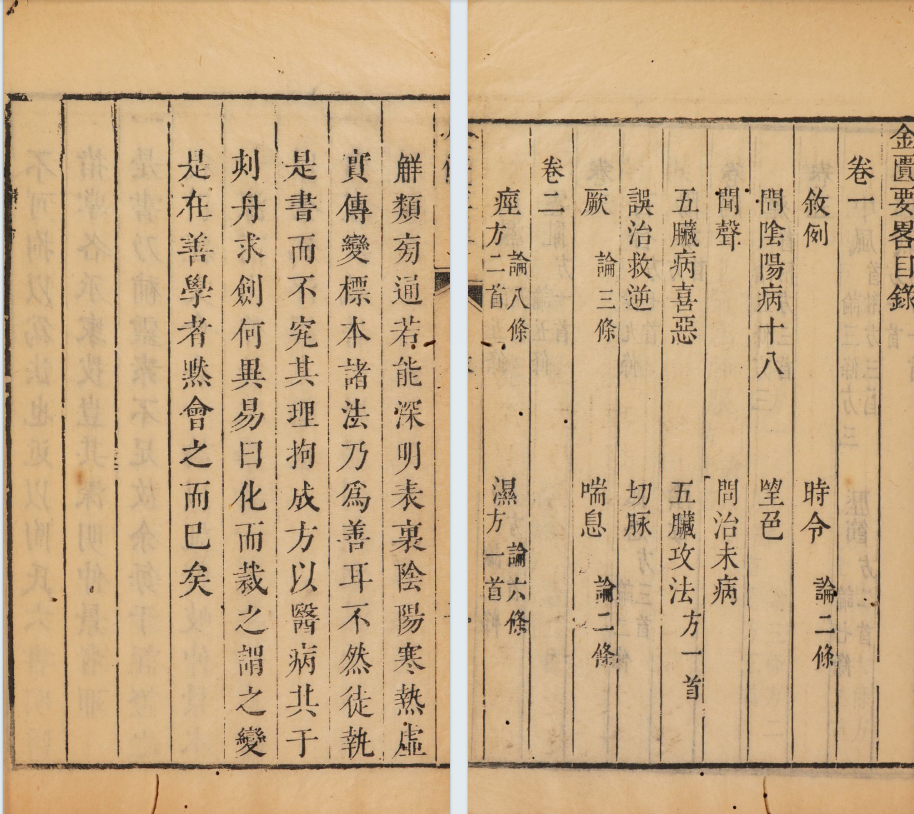 金匱要畧目錄
卷一
敘例 時令 論二條
問陰陽病十八 望色
聞聲 問治未病
五臟病喜惡 五臟攻法 方一首
誤治救逆 切脉
厥 論三條 喘息 論二條
卷二
痙 論八條 方二首 濕 論六條 方一首
觧類旁通若能深明表裏陰陽寒熱虛
實傳變標本諸法乃爲善耳不然徒執
是書而不究其理拘成方以醫病其于
刻舟求劍何異易曰化而裁之謂之變
是在善學者黙會之而巳矣